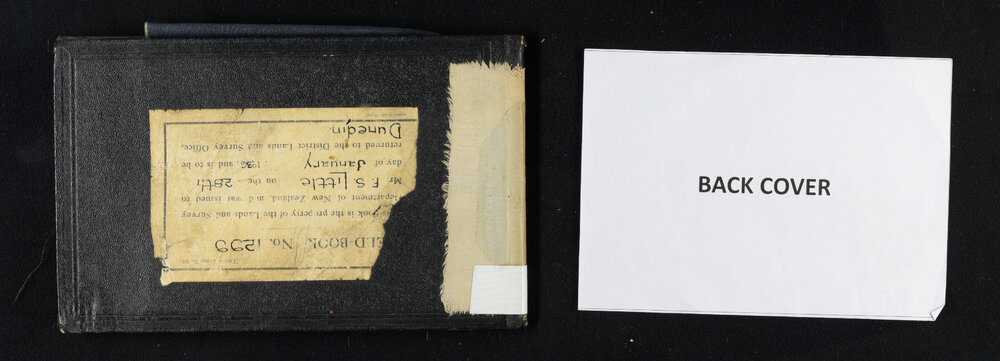 ELD-BOOK No. 1255
ook is the property of the Lands and Survey
Department of New Zealand, and was issued to
Mr F. S. Little on the 28th
day of January , 193 , and is to be
returned to the District Lands and Survey Office,
Dunedin
BACK COVER